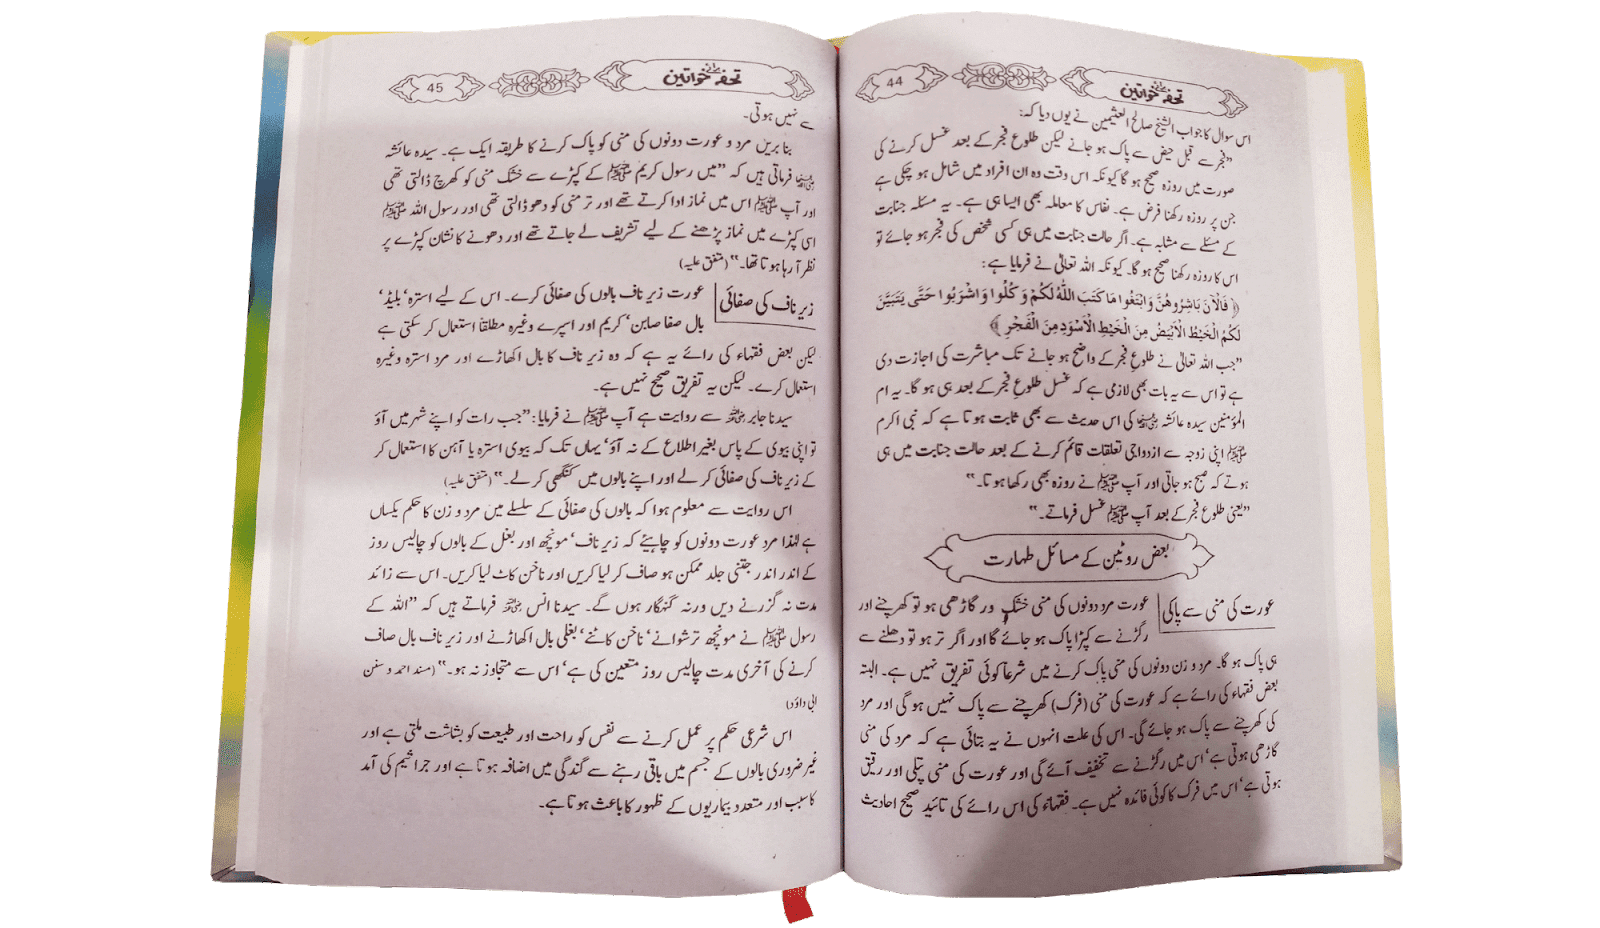 44
تحفہ برائے خواتین
اس سوال کا جواب الشیخ صالح العثیمین نے یوں دیا کہ:
”فجر سے قبل حیض سے پاک ہو جانے لیکن طلوع فجر کے بعد غسل کرنے کی
صورت میں روزہ صحیح ہو گا کیونکہ اس وقت وہ ان افراد میں شامل ہو چکی ہے
جن پر روزہ رکھنا فرض ہے۔ نفاس کا معاملہ بھی ایسا ہی ہے۔ یہ مسئلہ جنابت
کے مسئلے سے مشابہ ہے۔ اگر حالت جنابت میں ہی کسی شخص کی فجر ہو جائے تو
اس کا روزہ رکھنا صحیح ہو گا۔ کیونکہ اللہ تعالیٰ نے فرمایا ہے:
﴿ فَالْآنَ بَاشِرُوهُنَّ وَابْتَغُوا مَا كَتَبَ اللهُ لَكُمْ وَكُلُوا وَاشْرَبُوا حَتَّى يَتَبَيَّنَ
لَكُمُ الْخَيْطُ الْأَبْيَضُ مِنَ الْخَيْطِ الْأَسْوَدِ مِنَ الْفَجْرِ ﴾
”جب اللہ تعالیٰ نے طلوع فجر کے واضح ہو جانے تک مباشرت کی اجازت دی
ہے تو اس سے یہ بات بھی لازمی ہے کہ غسل طلوع فجر کے بعد ہی ہو گا۔ یہ ام
المؤمنین سیدہ عائشہ رضی اللہ عنہا کی اس حدیث سے بھی ثابت ہوتا ہے کہ نبی اکرم
ﷺ اپنی زوجہ سے ازدواجی تعلقات قائم کرنے کے بعد حالت جنابت میں ہی
ہوتے کہ صبح ہو جاتی اور آپ ﷺ نے روزہ بھی رکھا ہوتا۔“
”یعنی طلوع فجر کے بعد آپ ﷺ غسل فرماتے۔“
بعض روٹین کے مسائل طہارت
عورت کی منی سے پاکی
عورت مرد دونوں کی منی خشک اور گاڑھی ہو تو کھرچنے اور
رگڑنے سے کپڑا پاک ہو جائے گا اور اگر تر ہو تو دھلنے سے
ہی پاک ہو گا۔ مرد و زن دونوں کی منی پاک کرنے میں شرعاً کوئی تفریق نہیں ہے۔ البتہ
بعض فقہاء کی رائے ہے کہ عورت کی منی (فرک) کھرچنے سے پاک نہیں ہو گی اور مرد
کی کھرچنے سے پاک ہو جائے گی۔ اس کی علت انہوں نے یہ بتائی ہے کہ مرد کی منی
گاڑھی ہوتی ہے‘ اس میں رگڑنے سے تخفیف آئے گی اور عورت کی منی پتلی اور رقیق
ہوتی ہے‘ اس میں فرک کا کوئی فائدہ نہیں ہے۔ فقہاء کی اس رائے کی تائید صحیح احادیث
45
تحفہ برائے خواتین
سے نہیں ہوتی۔
بنا بریں مرد و عورت دونوں کی منی کو پاک کرنے کا طریقہ ایک ہے۔ سیدہ عائشہ
رضی اللہ عنہا فرماتی ہیں کہ ”میں رسول کریم ﷺ کے کپڑے سے خشک منی کو کھرچ ڈالتی تھی
اور آپ ﷺ اس میں نماز ادا کرتے تھے اور تر منی کو دھو ڈالتی تھی اور رسول اللہ ﷺ
اسی کپڑے میں نماز پڑھنے کے لیے تشریف لے جاتے تھے اور دھونے کا نشان کپڑے پر
نظر آ رہا ہوتا تھا۔“ (متفق علیہ)
زیر ناف کی صفائی
عورت زیر ناف بالوں کی صفائی کرے۔ اس کے لیے استرہ‘ بلیڈ‘
بال صفا صابن‘ کریم اور اسپرے وغیرہ مطلقاً استعمال کر سکتی ہے
لیکن بعض فقہاء کی رائے یہ ہے کہ وہ زیر ناف کا بال اکھاڑے اور مرد استرہ وغیرہ
استعمال کرے۔ لیکن یہ تفریق صحیح نہیں ہے۔
سیدنا جابر رضی اللہ عنہ سے روایت ہے آپ ﷺ نے فرمایا: ”جب رات کو اپنے شہر میں آؤ
تو اپنی بیوی کے پاس بغیر اطلاع کے نہ آؤ‘ یہاں تک کہ بیوی استرہ یا آہن کا استعمال کر
کے زیر ناف کی صفائی کر لے اور اپنے بالوں میں کنگھی کر لے۔“ (متفق علیہ)
اس روایت سے معلوم ہوا کہ بالوں کی صفائی کے سلسلے میں مرد و زن کا حکم یکساں
ہے لہٰذا مرد عورت دونوں کو چاہیئے کہ زیر ناف‘ مونچھ اور بغل کے بالوں کو چالیس روز
کے اندر اندر جتنی جلد ممکن ہو صاف کر لیا کریں اور ناخن کاٹ لیا کریں۔ اس سے زائد
مدت نہ گزرنے دیں ورنہ گنہگار ہوں گے۔ سیدنا انس رضی اللہ عنہ فرماتے ہیں کہ ”اللہ کے
رسول ﷺ نے مونچھ ترشوانے‘ ناخن کاٹنے‘ بغلی بال اکھاڑنے اور زیر ناف بال صاف
کرنے کی آخری مدت چالیس روز متعین کی ہے‘ اس سے متجاوز نہ ہو۔“ (مسند احمد و سنن
ابی داؤد)
اس شرعی حکم پر عمل کرنے سے نفس کو راحت اور طبیعت کو بشاشت ملتی ہے اور
غیر ضروری بالوں کے جسم میں باقی رہنے سے گندگی میں اضافہ ہوتا ہے اور جراثیم کی آمد
کا سبب اور متعدد بیماریوں کے ظہور کا باعث ہوتا ہے۔